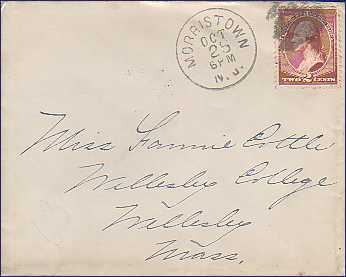 MORRISTOWN
OCT
25
6 PM
N.J.
TWO 2 CENTS
Miss Fannie Cottle
Wellesley College
Wellesley
Mass.